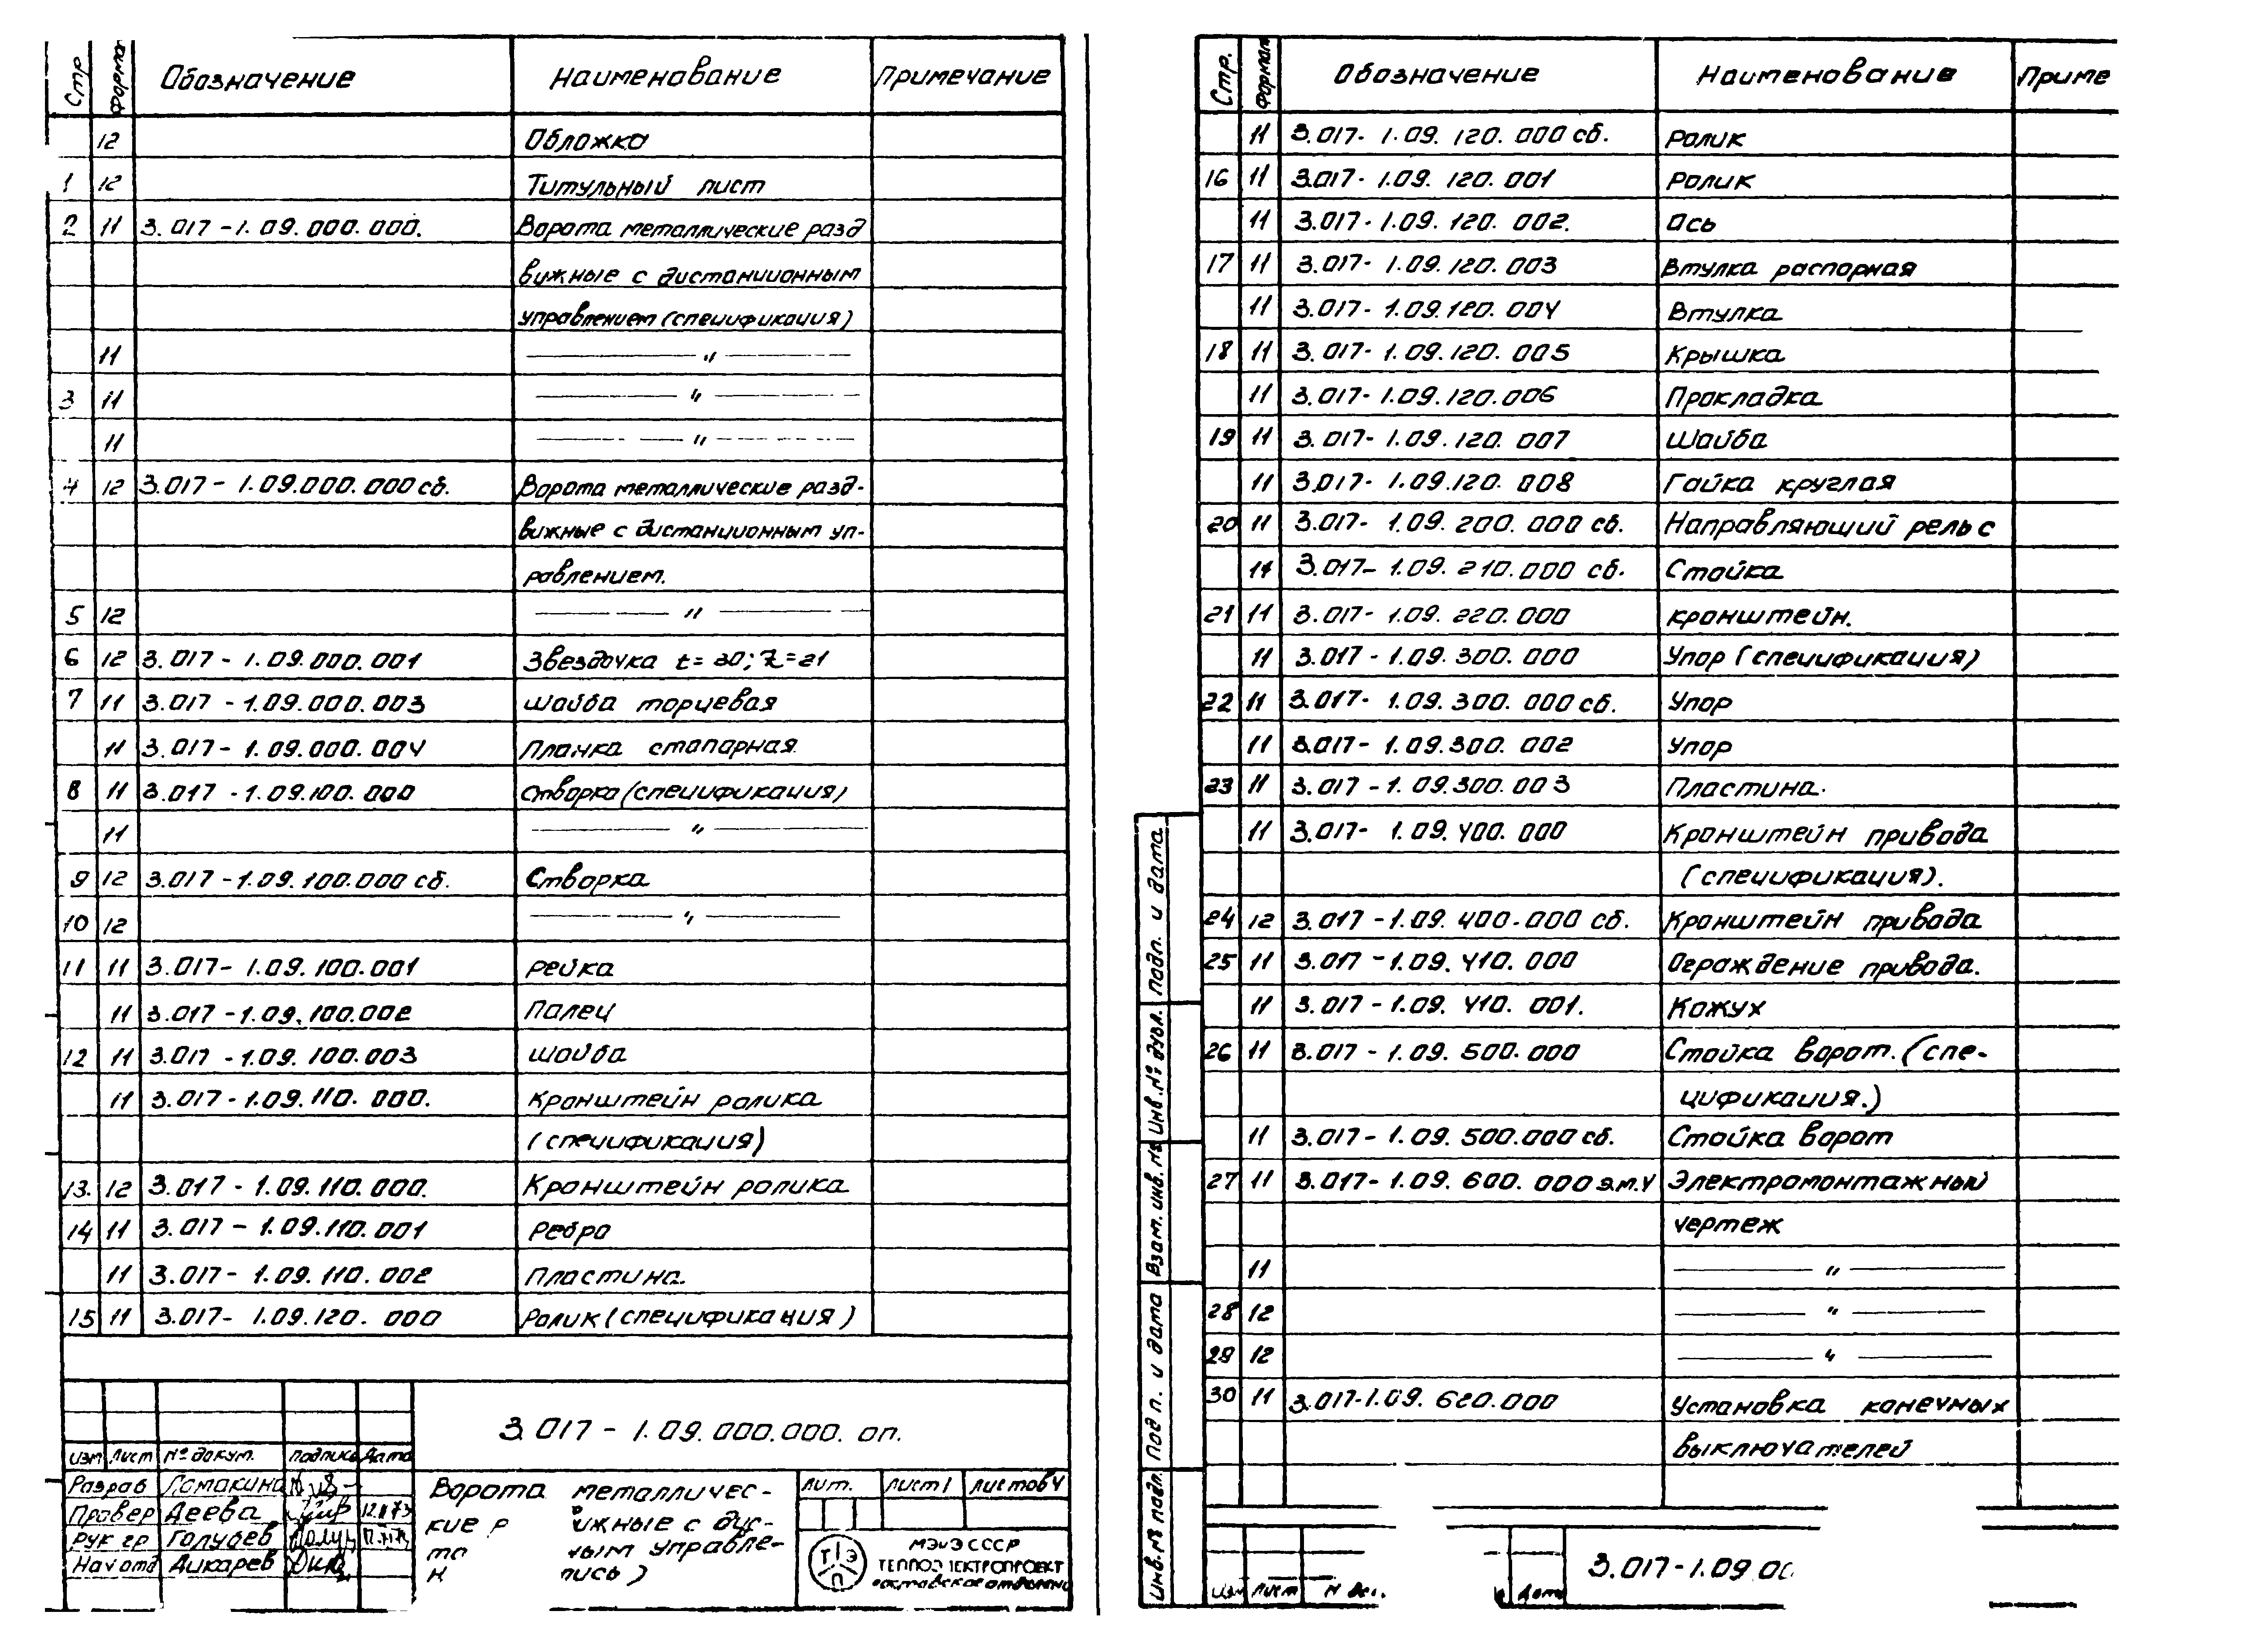 Стр Формат Обозначение Наименование Примечание
12 Обложка
1 12 Титульный лист
2 11 3.017-1.09.000.000. Ворота металлические разд
вижные с дистанционным
управлением (спецификация)
11 — " —
3 11 — " —
11 — " —
4 12 3.017-1.09.000.000 сб. Ворота металлические разд-
вижные с дистанционным уп-
равлением.
5 12 — " —
6 12 3.017-1.09.000.001 Звездочка t=30; Z=21
7 11 3.017-1.09.000.003 Шайба торцевая
11 3.017-1.09.000.004 Планка стопорная
8 11 3.017-1.09.100.000 Створка (спецификация)
11 — " —
9 12 3.017-1.09.100.000 сб. Створка
10 12 — " —
11 11 3.017-1.09.100.001 Рейка
11 3.017-1.09.100.002 Палец
12 11 3.017-1.09.100.003 Шайба
11 3.017-1.09.110.000. Кронштейн ролика
(спецификация)
13. 12 3.017-1.09.110.000. Кронштейн ролика
14 11 3.017-1.09.110.001 Ребро
11 3.017-1.09.110.002 Пластина.
15 11 3.017-1.09.120.000 Ролик (спецификация)
3.017-1.09.000.000. оп.
Изм Лист № докум. Подпись Дата
Разраб Ломакина
Провер Деева
Рук гр Голубев
Нач отд Дикарев
Ворота металличес-
кие р ижные с дис-
та ным управле-
н пись)
Лит. Лист 1 Листов 4
МЭиЭ СССР
ТЕПЛОЭЛЕКТРОПРОЕКТ
Ростовское отделение
ТЭП
Стр. Формат Обозначение Наименование Приме
11 3.017-1.09.120.000 сб. Ролик
16 11 3.017-1.09.120.001 Ролик
11 3.017-1.09.120.002. Ось
17 11 3.017-1.09.120.003 Втулка распорная
11 3.017-1.09.120.004 Втулка
18 11 3.017-1.09.120.005 Крышка
11 3.017-1.09.120.006 Прокладка
19 11 3.017-1.09.120.007 Шайба
11 3.017-1.09.120.008 Гайка круглая
20 11 3.017-1.09.200.000 сб. Направляющий рельс
11 3.017-1.09.210.000 сб. Стойка
21 11 3.017-1.09.220.000 Кронштейн.
11 3.017-1.09.300.000 Упор (спецификация)
22 11 3.017-1.09.300.000 сб. Упор
11 3.017-1.09.300.002 Упор
23 11 3.017-1.09.300.003 Пластина.
11 3.017-1.09.400.000 Кронштейн привода
(спецификация).
24 12 3.017-1.09.400.000 сб. Кронштейн привода
25 11 3.017-1.09.410.000 Ограждение привода.
11 3.017-1.09.410.001. Кожух
26 11 3.017-1.09.500.000 Стойка ворот. (спе-
цификация.)
11 3.017-1.09.500.000 сб. Стойка ворот
27 11 3.017-1.09.600.000 э.м.ч Электромонтажный
чертеж
11 — " —
28 12 — " —
29 12 — " —
30 11 3.017-1.09.620.000 Установка конечных
выключателей
Инв. № подл. Подп. и дата Взам. инв. № Инв. № дубл. Подл. и дата
Изм Лист Дата
3.017-1.09.00